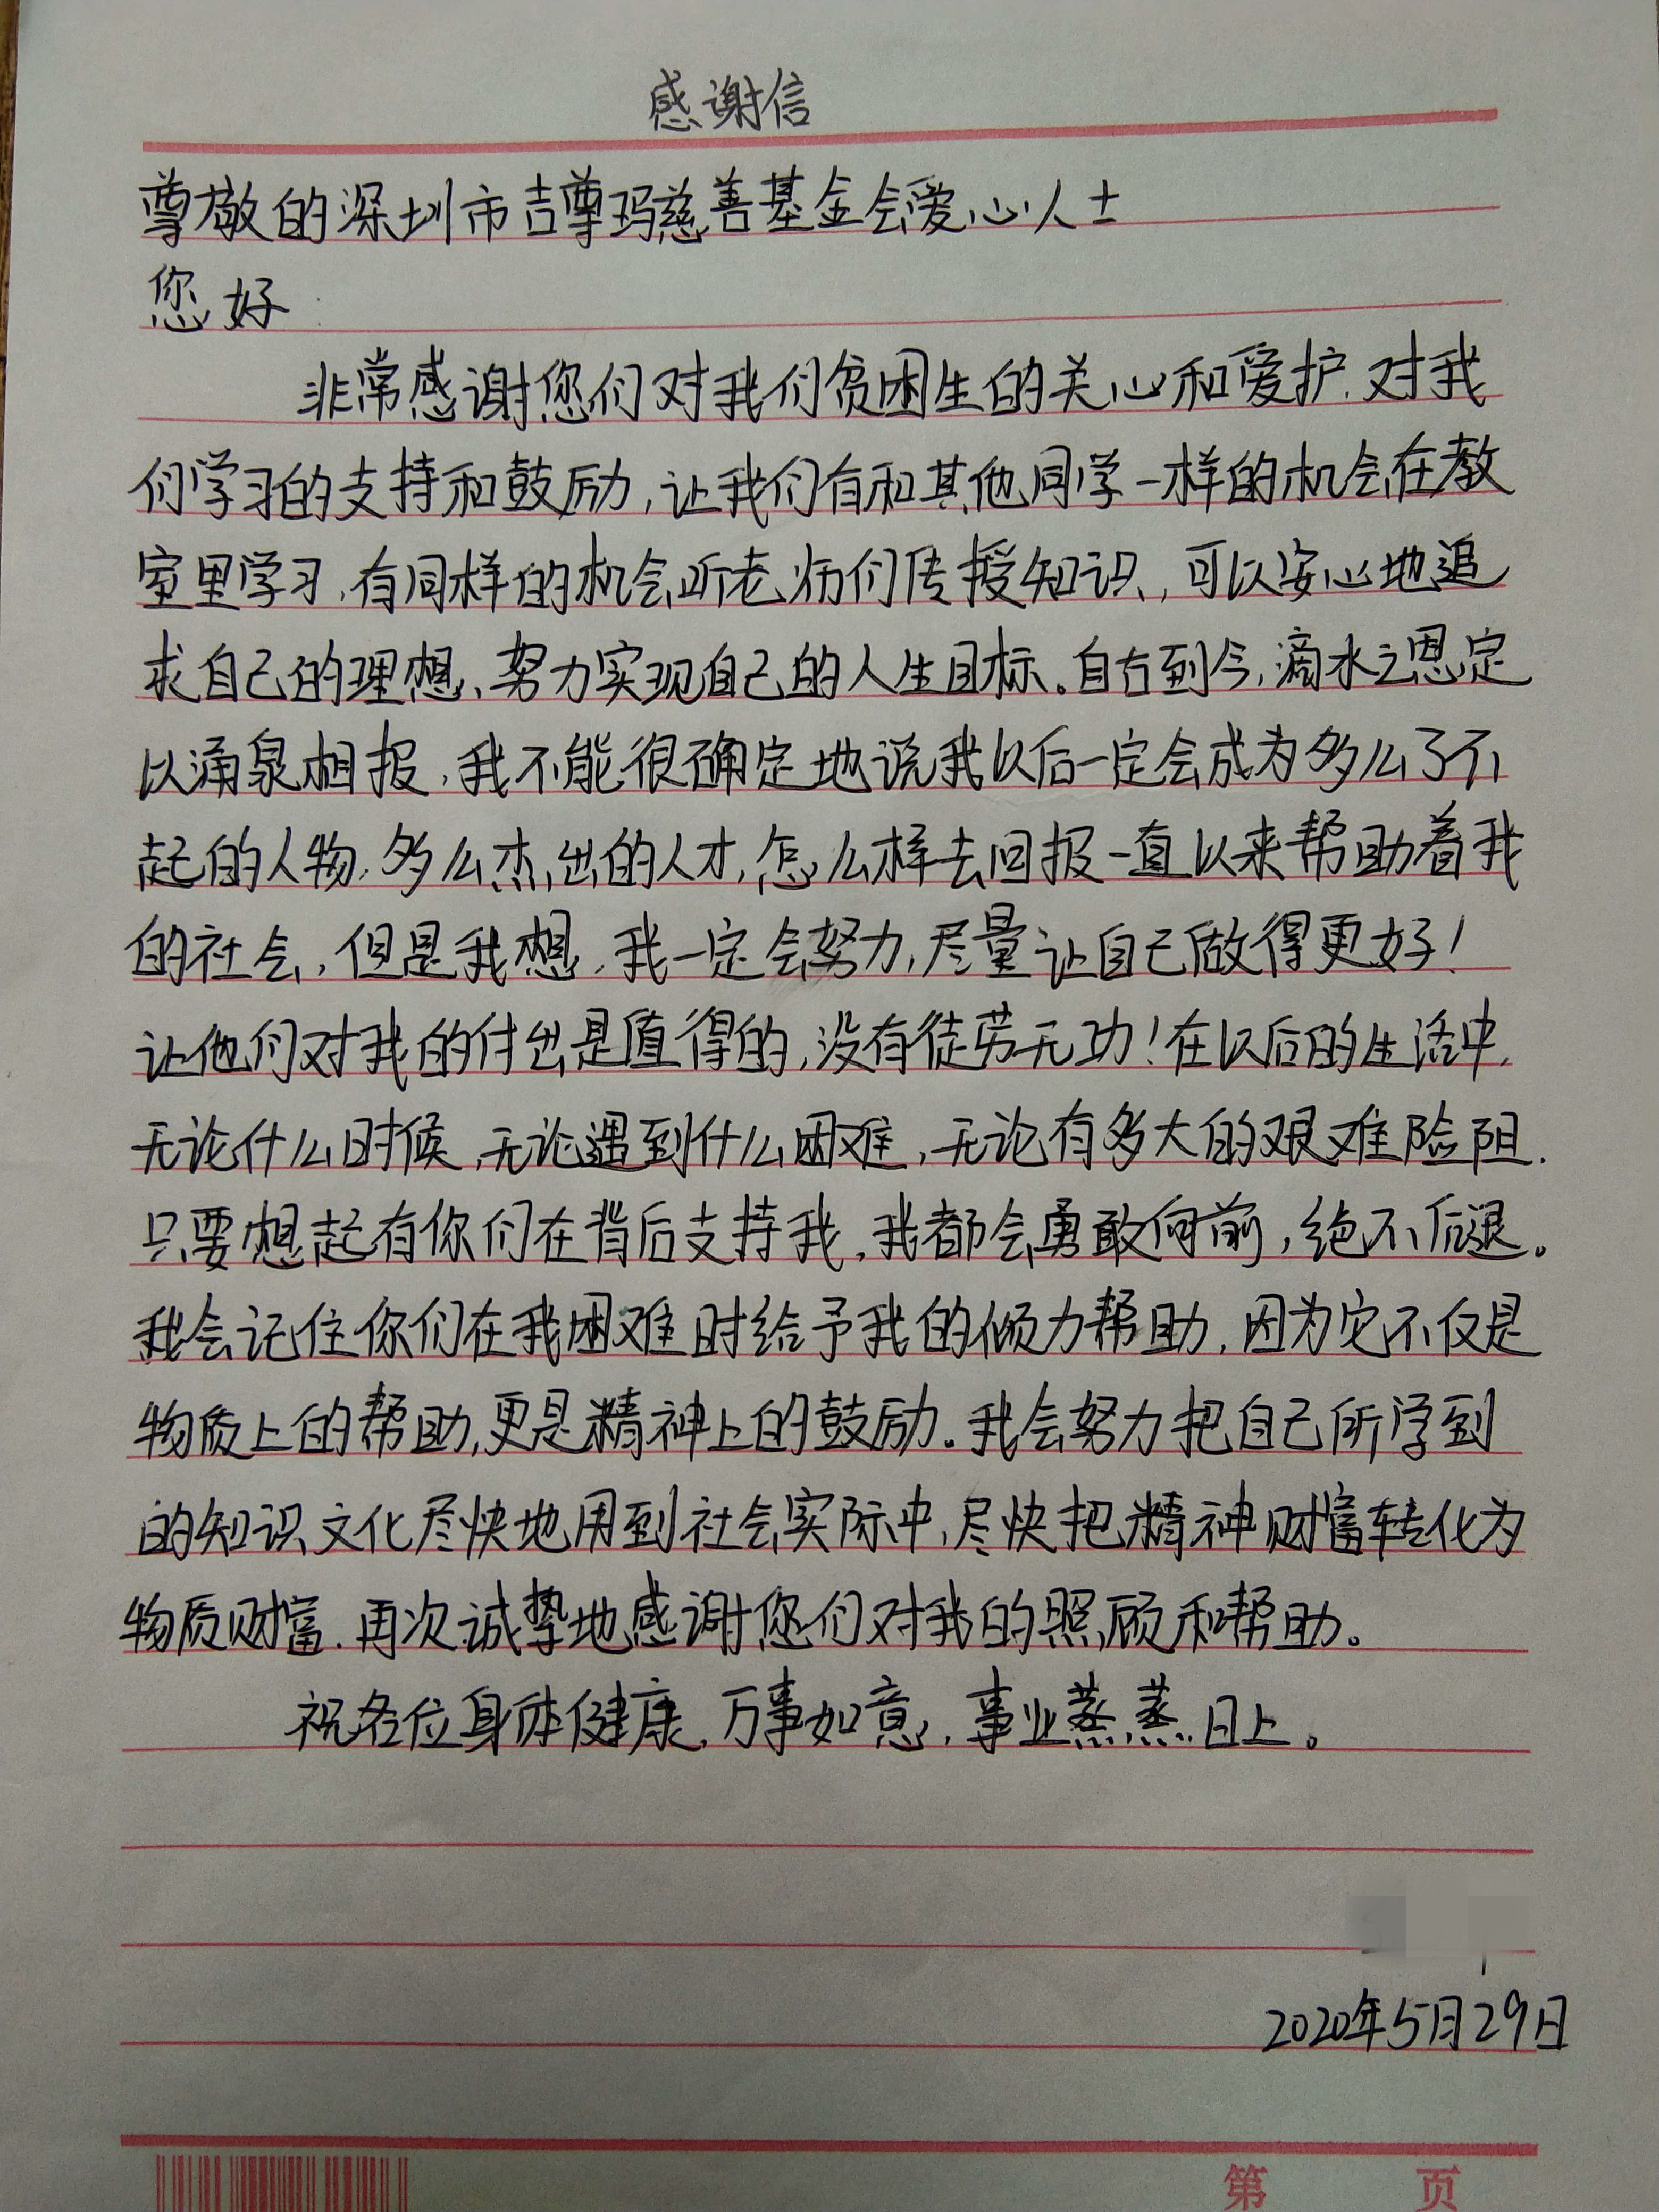 感谢信
尊敬的深圳市吉尊玛慈善基金会爱心人士
您好
非常感谢您们对我们贫困生的关心和爱护.对我
们学习的支持和鼓励,让我们有和其他同学一样的机会在教
室里学习,有同样的机会听老师们传授知识,可以安心地追
求自己的理想、努力实现自己的人生目标。自古到今,滴水之恩定
以涌泉相报,我不能很确定地说我以后一定会成为多么了不
起的人物,多么杰出的人才,怎么样去回报一直以来帮助着我
的社会,但是我想,我一定会努力,尽量让自己做得更好!
让他们对我的付出是值得的,没有徒劳无功!在以后的生活中,
无论什么时候,无论遇到什么困难,无论有多大的艰难险阻.
只要想起有你们在背后支持我,我都会勇敢向前,绝不后退。
我会记住你们在我困难时给予我的倾力帮助,因为它不仅是
物质上的帮助,更是精神上的鼓励。我会努力把自己所学到
的知识文化尽快地用到社会实际中,尽快把精神财富转化为
物质财富.再次诚挚地感谢您们对我的照顾和帮助。
祝各位身体健康,万事如意,事业蒸蒸日上。
2020年5月29日
第 页